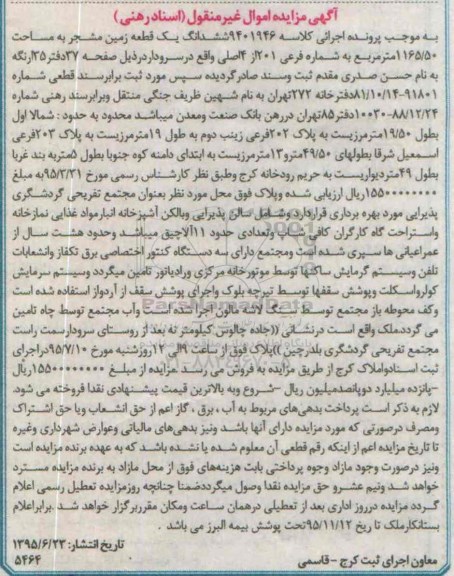 آگهی مزایده اموال غیرمنقول (اسناد رهنی)
به موجب پرونده اجرائی کلاسه ۹۴۰۱۹۴۶ ششدانگ یک قطعه زمین مشجر به مساحت
۱۱۶۵/۵۰ مترمربع به شماره فرعی ۲۰۱ از ۴ اصلی واقع در سرودار در ذیل صفحه ۳۷ دفتر ۳۵ ارنگه
به نام حسن صدری مقدم ثبت وسند صادر گردیده سپس مورد ثبت برابر سند قطعی شماره
۹۱۸۰۱-۸۱/۱۰/۱۴ دفترخانه ۲۷۲ تهران به نام شهین ظریف جنگی منتقل وبرابر سند رهنی شماره
۱۰۰۳۰-۸۸/۱۲/۲۴ دفتر ۸۵ تهران در رهن بانک صنعت ومعدن میباشد محدود به حدود : شمالا اول
بطول ۱۹/۵۰ مترمرزیست به پلاک ۲۰۲ فرعی زینب دوم به طول ۱۹ مترمرزیست به پلاک ۲۰۳ فرعی
اسمعیل شرقا بطولهای ۴۹/۵۰ مترو ۱۳ مترمرزیست به ابتدای دامنه کوه جنوبا بطول ۵ متربه بند غربا
بطول ۴۹ متردیواریست به حریم رودخانه کرج وطبق نظر کارشناس رسمی مورخ ۹۵/۳/۳۱ به مبلغ
۱۵۵۰۰۰۰۰۰۰۰ ریال ارزیابی شده وپلاک فوق محل مورد نظر بعنوان مجتمع تفریحی گردشگری
پذیرایی مورد بهره برداری قراردارد وشامل سالن پذیرایی وبالکن آشپزخانه انبارمواد غذایی نمازخانه
واستراحت گاه کارگران کافی شاپ وتعدادی حدود ۱۱ آلاچیق میباشد وحدود هشت سال از
عمراعیانی ها سپری شده است ومجتمع دارای سه دستگاه کنتور اختصاصی برق تکفاز وانشعابات
تلفن وسیستم گرمایش سالنها توسط موتورخانه مرکزی ورادیاتور تامین میگردد وسیستم سرمایش
کولرواسکلت وپوشش سقفها توسط تیرچه بلوک واجرای پوشش سقف از آردواز استفاده شده است
وکف محوطه باز مجتمع توسط سنگ لاشه مالون اجرا شده است وآب مجتمع توسط چاه تامین
می گردد.ملک واقع است درنشانی ((جاده چالوس کیلومتر نه بعد از روستای سرودارسمت راست
مجتمع تفریحی گردشگری بلدرچین ))پلاک فوق از ساعت ۹ الی ۱۲ روزشنبه مورخ ۹۵/۷/۱۰ دراجرای
ثبت اسنادواملاک کرج از طریق مزایده به فروش می رسد .مزایده از مبلغ ۱۵۵۰۰۰۰۰۰۰۰ ریال
-پانزده میلیارد دوپانصدمیلیون ریال –شروع وبه بالاترین قیمت پیشنهادی نقدا فروخته می شود.
لازم به ذکر است پرداخت بدهی‌های مربوط به آب ، برق ، گاز اعم از حق انشعاب ویا حق اشتراک
ومصرف درصورتی که مورد مزایده دارای آنها باشد ونیز بدهی‌های مالیاتی وعوارض شهرداری وغیره
تا تاریخ مزایده اعم از اینکه رقم قطعی آن معلوم شده یا نشده باشد که به عهده برنده مزایده است
ونیز درصورت وجود مازاد وجوه پرداختی بابت هزینه‌های فوق از محل مازاد به برنده مزایده مسترد
خواهد شد ونیم عشرو حق مزایده نقدا وصول میگرددضمنا چنانچه روزمزایده تعطیل رسمی اعلام
گردد مزایده درروز اداری بعد از تعطیلی درهمان ساعت ومکان مقرربرگزار خواهد شد .برابراعلام
بستانکارملک تا ریخ ۹۵/۱۱/۱۲ تحت پوشش بیمه البرز می باشد .
تاریخ انتشار: ۱۳۹۵/۶/۲۳
معاون اجرای ثبت کرج – قاسمی
۵۴۶۴